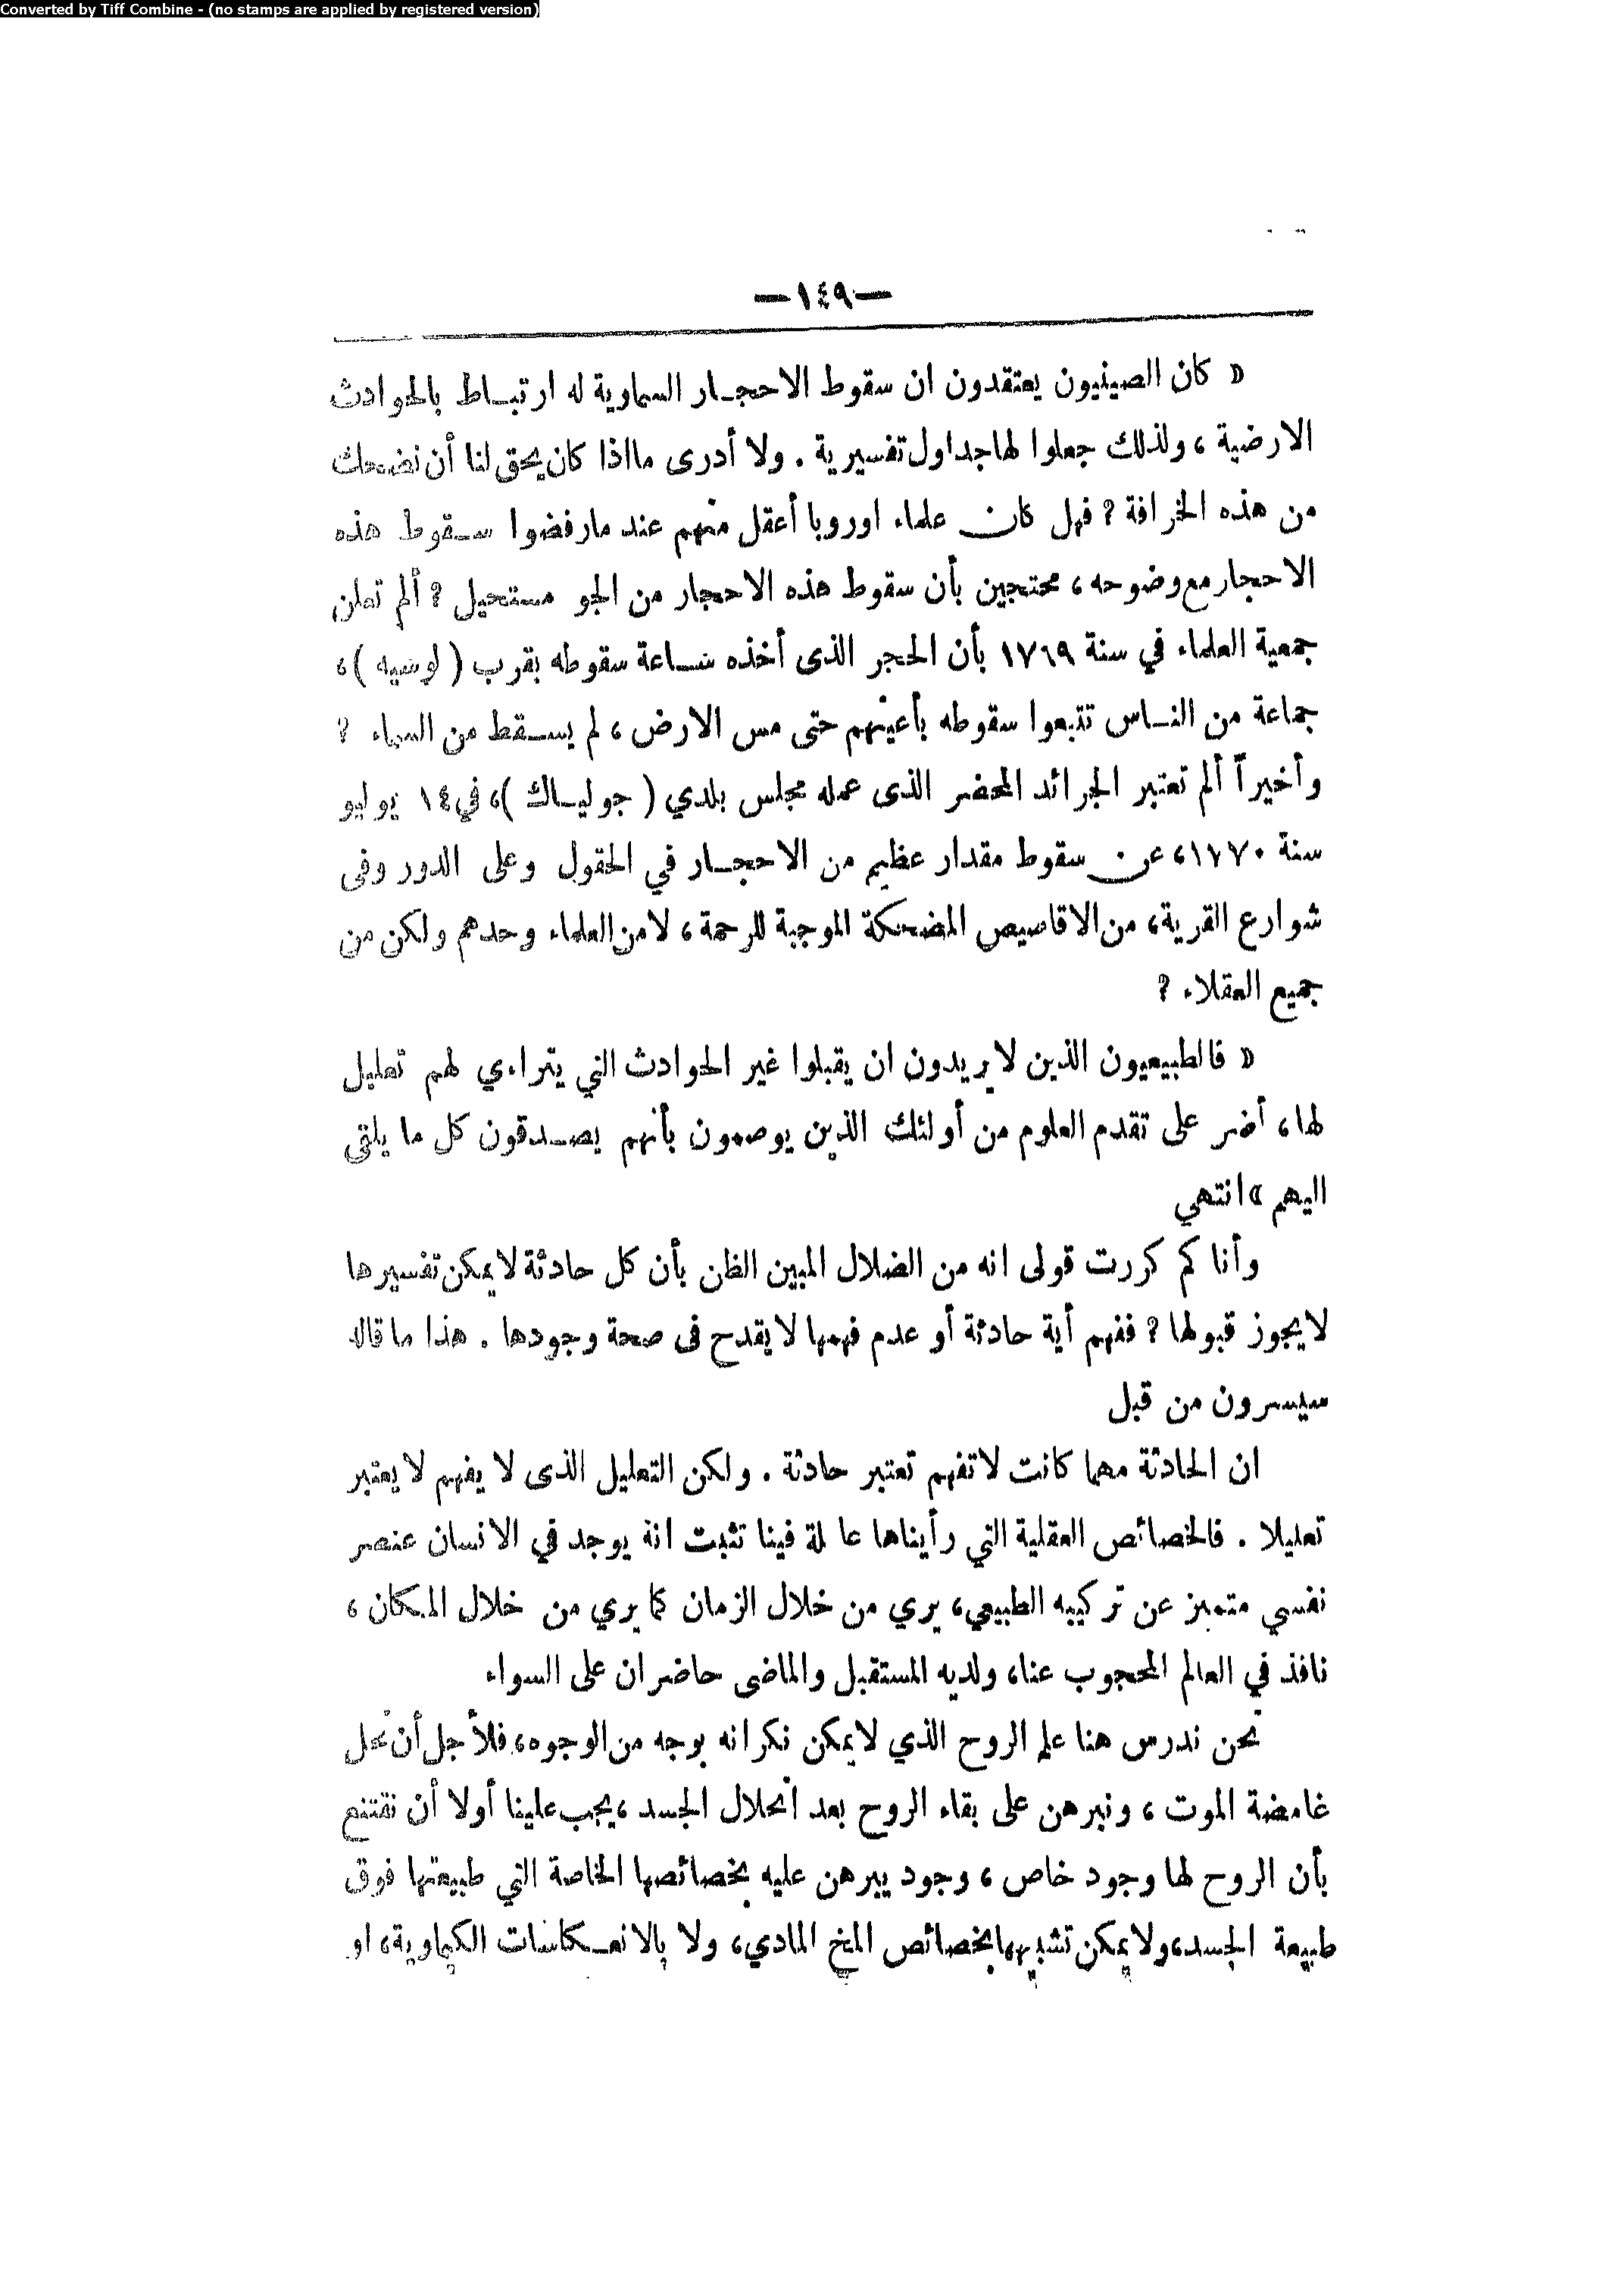 Converted by Tiff Combine - (no stamps are applied by registered version)
—١٤٩—
« كان الصينيون يعتقدون ان سقوط الاحجـار السماوية له ارتبـاط بالحوادث
الارضية ، ولذلك جعلوا لها جداول تفسيرية . ولا أدرى ما اذا كان يحق لنا أن نضحك
من هذه الخرافة ? فهل كان علماء اوروبا أعقل منهم عند ما رفضوا سـقوط هذه
الاحجار مع وضوحه ، محتجين بأن سقوط هذه الاحجار من الجو مستحيل ? ألم تعلن
جمعية العلماء في سنة ١٧٦٩ بأن الحجر الذى أخذه سـاعة سقوطه بقرب ( لوسيه ) ،
جماعة من النـاس تتبعوا سقوطه بأعينهم حتى مس الارض ، لم يسـقط من السماء ?
وأخيراً ألم تعتبر الجرائد المحضر الذى عمله مجلس بلدي ( جوليـاك ) ، في ١٤ يوليو
سنة ١٧٧٠ ، عن سقوط مقدار عظيم من الاحجـار في الحقول وعلى الدور وفى
شوارع القرية ، من الاقاصيص المضحكة الموجبة للرحمة ، لا من العلماء وحدهم ولكن من
جميع العقلاء ?
« فالطبيعيون الذين لا يريدون ان يقبلوا غير الحوادث التي يتراءى لهم تعليل
لها ، أضر على تقدم العلوم من أولئك الذين يوصمون بأنهم يصـدقون كل ما يلقى
اليهم » انتهي
وأنا كم كررت قولى انه من الضلال المبين الظن بأن كل حادثة لا يمكن تفسيرها
لا يجوز قبولها ? ففهم أية حادثة أو عدم فهمها لا يقدح فى صحة وجودها . هذا ما قاله
سيسرون من قبل
ان الحادثة مهما كانت لا تفهم تعتبر حادثة . ولكن التعليل الذى لا يفهم لا يعتبر
تعليلا . فالخصائص العقلية التي رأيناها عاملة فينا تثبت انه يوجد في الانسان عنصر
نفسي متميز عن تركيبه الطبيعي ، يري من خلال الزمان كما يري من خلال المكان ،
نافذ في العالم المحجوب عنا ، ولديه المستقبل والماضى حاضران على السواء
نحن ندرس هنا علم الروح الذي لا يمكن نكرانه بوجه من الوجوه ، فلأجل أن نحل
غامضة الموت ، ونبرهن على بقاء الروح بعد انحلال الجسد ، يجب علينا أولا أن نقتنع
بأن الروح لها وجود خاص ، وجود يبرهن عليه بخصائصها الخاصة التي طبيعتها فوق
طبيعة الجسد ، ولا يمكن تشبيهها بخصائص المخ المادي ، ولا بالانعـكاسات الكيماوية ، او